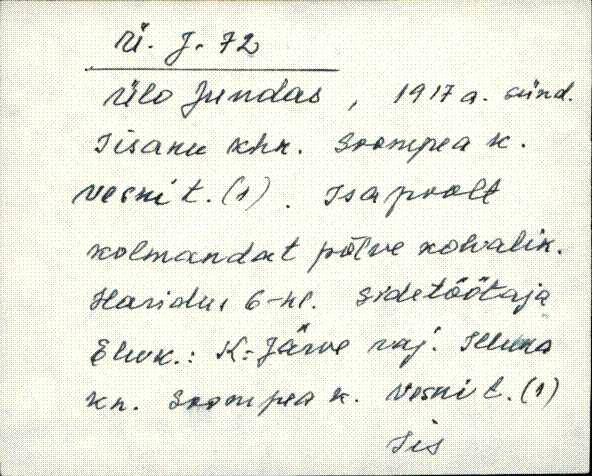 Ü. J. 72
Ülo Jundas, 1917 a. sünd.
Iisaku khk. Soompea k.
Veski t. (1). Isapoolt
kolmandat põlve kohalik.
Haridus 6-kl. Sidetöötaja
Eluk.: K-Järve raj. Illuka
kn. Soompea k. Veski t. (1)
Iis